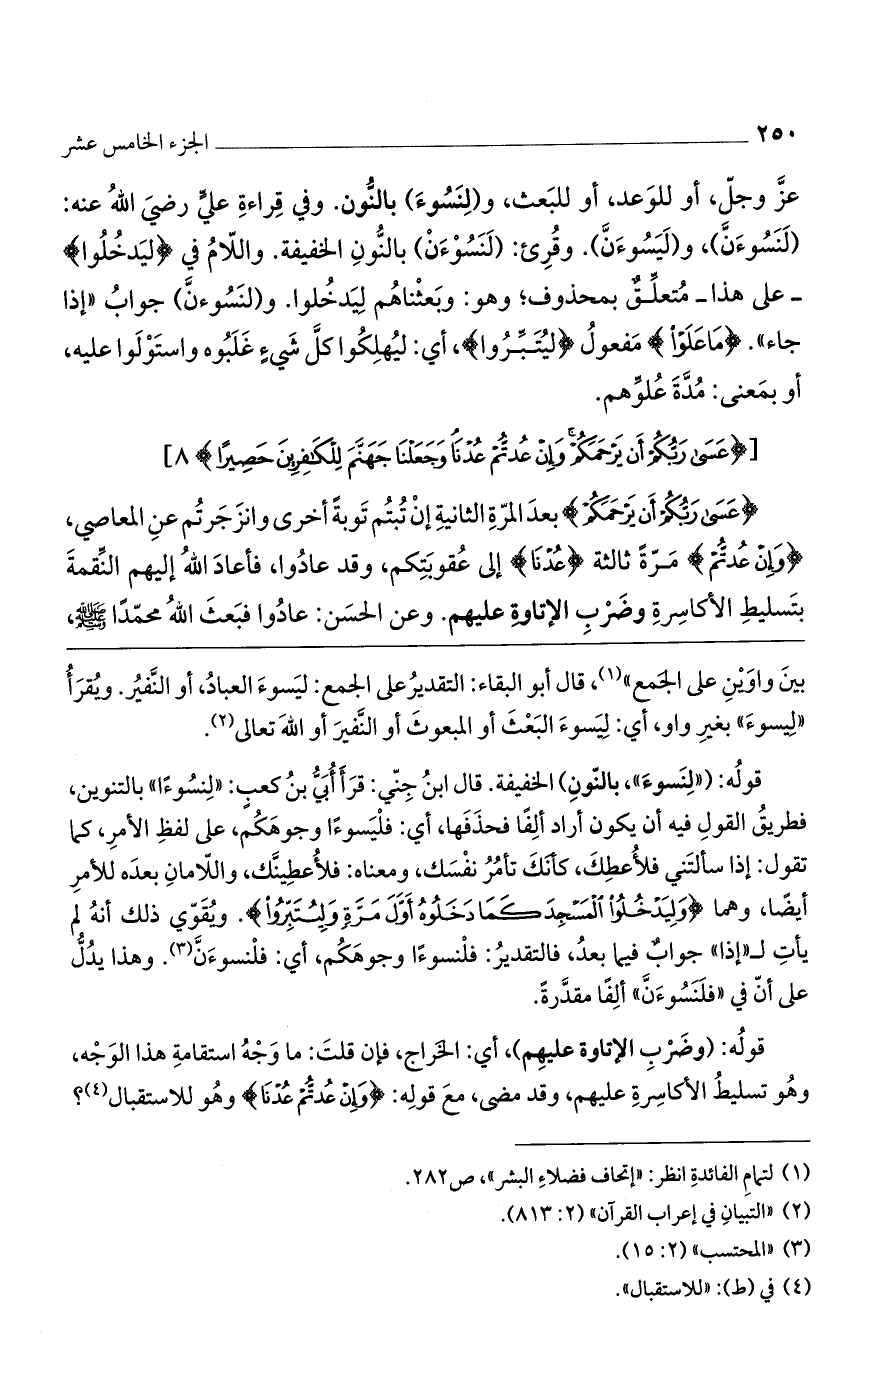 ٢٥٠ الجزء الخامس عشر
عزَّ وجلّ، أو للوَعد، أو للبَعث، و(لِنَسُوءَ) بالنُّون. وفي قِراءةِ عليٍّ رضيَ اللهُ عنه:
(لَنَسُوءَنَّ)، و(لَيَسُوءَنَّ). وقُرِئ: (لَنَسُوْءَنْ) بالنُّونِ الخفيفة. واللّامُ في ﴿لِيَدخُلُوا﴾
ـ على هذا ـ مُتعلِّقٌ بمحذوف؛ وهو: وبَعثْناهُم لِيَدخُلوا. و(لنَسُوءنَّ) جوابُ «إذا
جاء». ﴿مَاعَلَوْا۟﴾ مَفعولُ ﴿لِيُتَبِّرُوا﴾، أي: ليُهلِكُوا كلَّ شيءٍ غَلَبُوه واستَوْلَوا عليه،
أو بمَعنى: مُدَّةَ عُلوِّهم.
[﴿عَسَىٰ رَبُّكُمْ أَن يَرْحَمَكُمْ ۚ وَإِنْ عُدتُّمْ عُدْنَا ۘ وَجَعَلْنَا جَهَنَّمَ لِلْكَـٰفِرِينَ حَصِيرًا﴾ ٨]
﴿عَسَىٰ رَبُّكُمْ أَن يَرْحَمَكُمْ﴾ بعدَ المرّةِ الثانيةِ إنْ تُبتُم تَوبةً أخرى وانزَجَرتُم عنِ المعاصي،
﴿وَإِنْ عُدتُّمْ﴾ مَرّةً ثالثة ﴿عُدْنَا﴾ إلى عقوبَتِكم، وقد عادُوا، فأعادَ اللهُ إليهم النِّقمةَ
بتَسليطِ الأكاسِرةِ وضَرْبِ الإتاوةِ عليهم. وعن الحسَن: عادُوا فبَعثَ اللهُ محمّدًا ﷺ،
بينَ واوَيْنِ على الجَمع»(١)، قال أبو البقاء: التقديرُ على الجمع: ليَسوءَ العبادُ، أو النَّفيرُ. ويُقرَأُ
«لِيسوءَ» بغيرِ واو، أي: لِيَسوءَ البَعْثَ أو المبعوث أو النَّفيرَ أو اللهَ تعالى(٢).
قولُه: («لِنَسوءَ»، بالنّونِ) الخفيفة. قال ابنُ جِنّي: قرَأَ أُبَيُّ بنُ كعبٍ: «لِنسُوءًا» بالتنوين،
فطريقُ القولِ فيه أن يكون أراد ألِفًا فحذَفَها، أي: فلْيَسوءًا وجوهَكُم، على لفظِ الأمرِ، كما
تقول: إذا سألتَني فلأُعطِكَ، كأنّكَ تأمُرُ نفْسَك، ومعناه: فلأُعطِينَّك، واللّامانِ بعدَه للأمرِ
أيضًا، وهما ﴿وَلِيَدْخُلُوا۟ ٱلْمَسْجِدَ كَمَا دَخَلُوهُ أَوَّلَ مَرَّةٍ وَلِيُتَبِّرُوا۟﴾. ويُقَوّي ذلك أنهُ لم
يأتِ لـ«إذا» جوابٌ فيما بعدُ، فالتقديرُ: فلنسوءًا وجوهَكُم، أي: فلْنسوءَنَّ(٣). وهذا يدُلُّ
على أنّ في «فلَنَسُوءَنَّ» ألِفًا مقدَّرةً.
قولُه: (وضَرْبِ الإتاوة عليهِم)، أي: الخَراج، فإن قلتَ: ما وَجْهُ استقامةِ هذا الوَجْه،
وهُو تسليطُ الأكاسِرةِ عليهم، وقد مضى، معَ قولِه: ﴿وَإِنْ عُدتُّمْ عُدْنَا﴾ وهُو للاستقبال(٤)؟
(١) لتمامِ الفائدةِ انظر: «إتحاف فضلاءِ البشر»، ص٢٨٢.
(٢) «التبيانِ في إعراب القرآن» (٢: ٨١٣).
(٣) «المحتسب» (٢: ١٥).
(٤) في (ط): «للاستقبال».